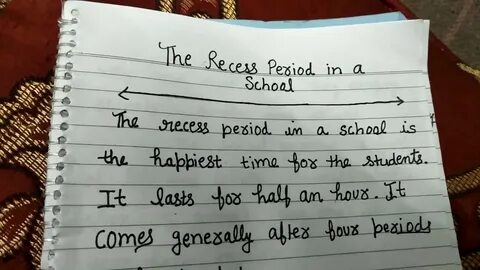 The Recess Period in a
School
The recess period in a school is
the happiest time for the students.
It lasts for half an hour. It
comes generally after four periods